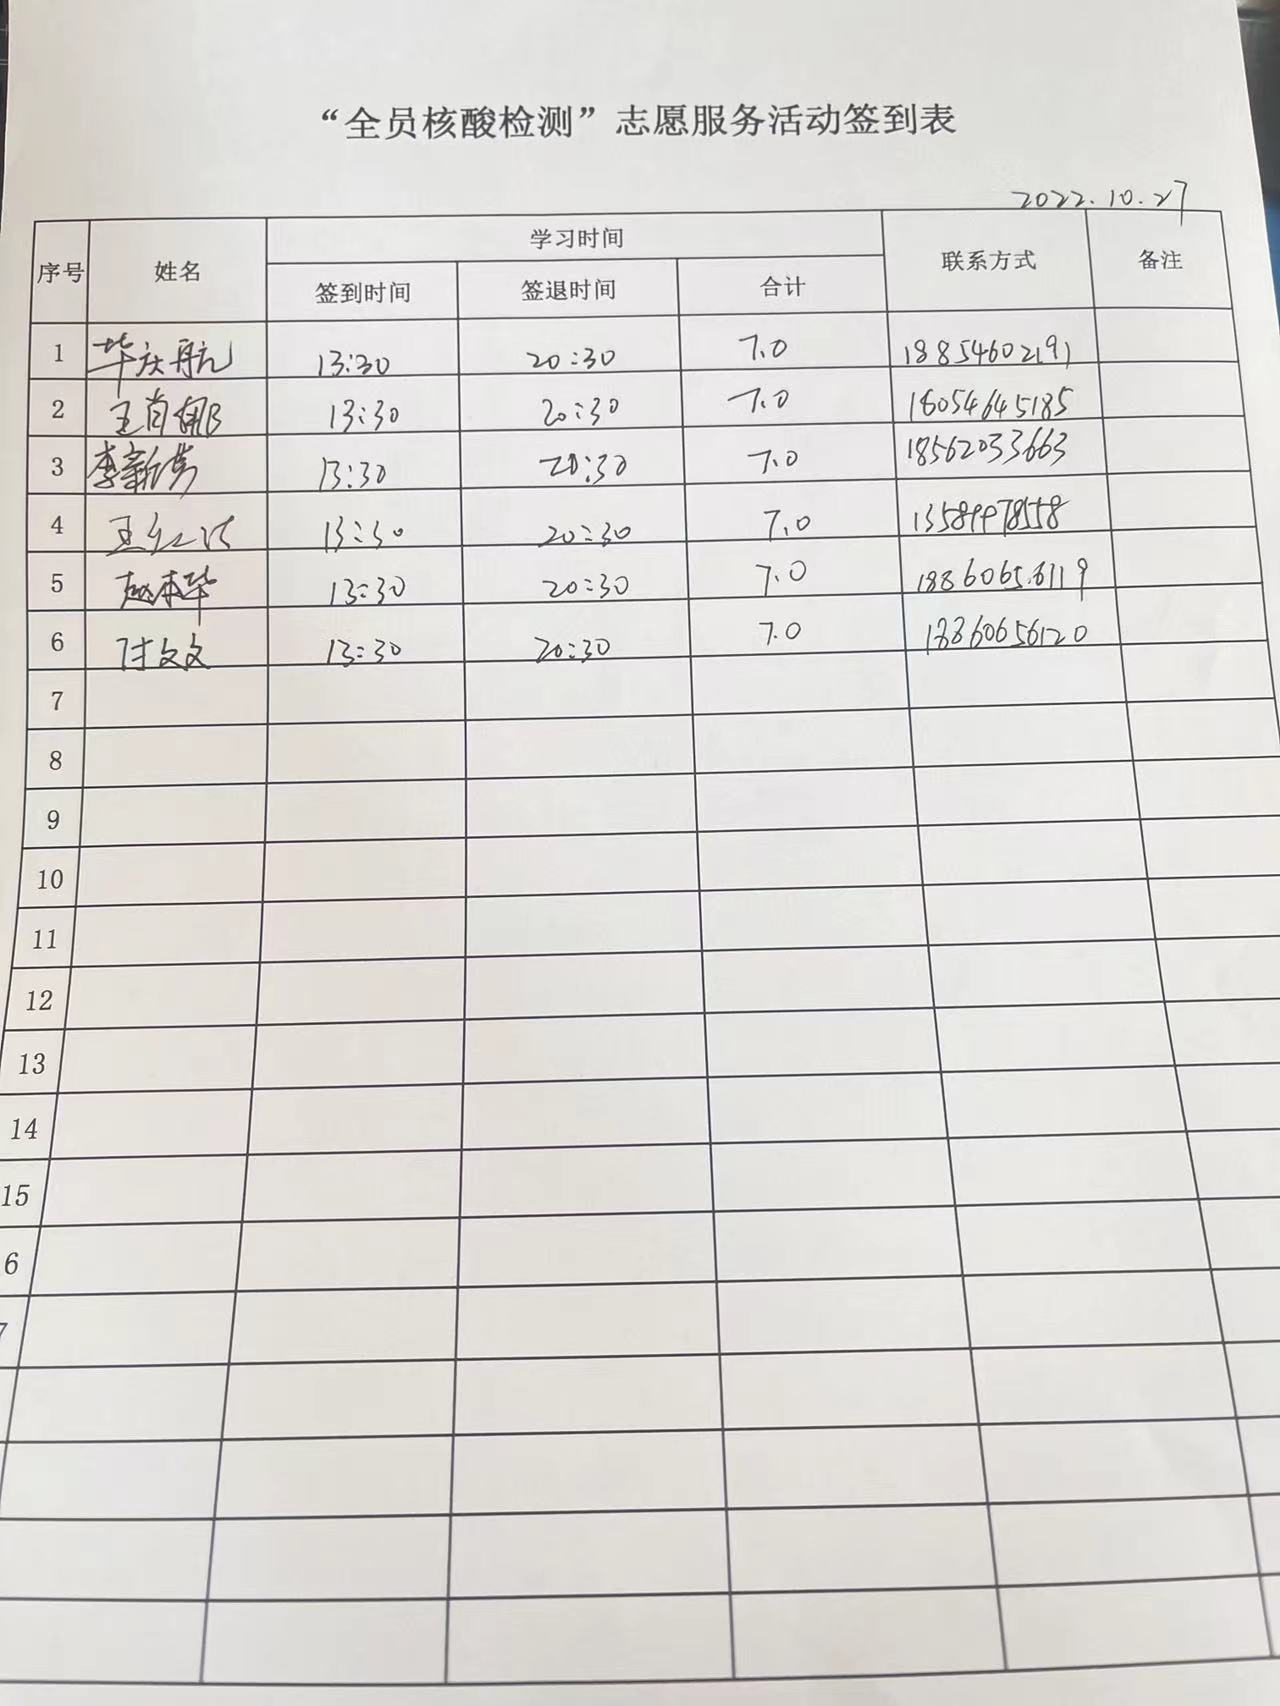 “全员核酸检测”志愿服务活动签到表
2022.10.27
序号 姓名 学习时间 联系方式 备注
签到时间 签退时间 合计
1 毕庆航 13:30 20:30 7.0 18854602191
2 王肖娜 13:30 20:30 7.0 18054645185
3 李新 13:30 20:30 7.0 18562033663
4 王红 13:30 20:30 7.0 13589978558
5 赵本华 13:30 20:30 7.0 18860656119
6 付文文 13:30 20:30 7.0 18860656120
7
8
9
10
11
12
13
14
15
6
7